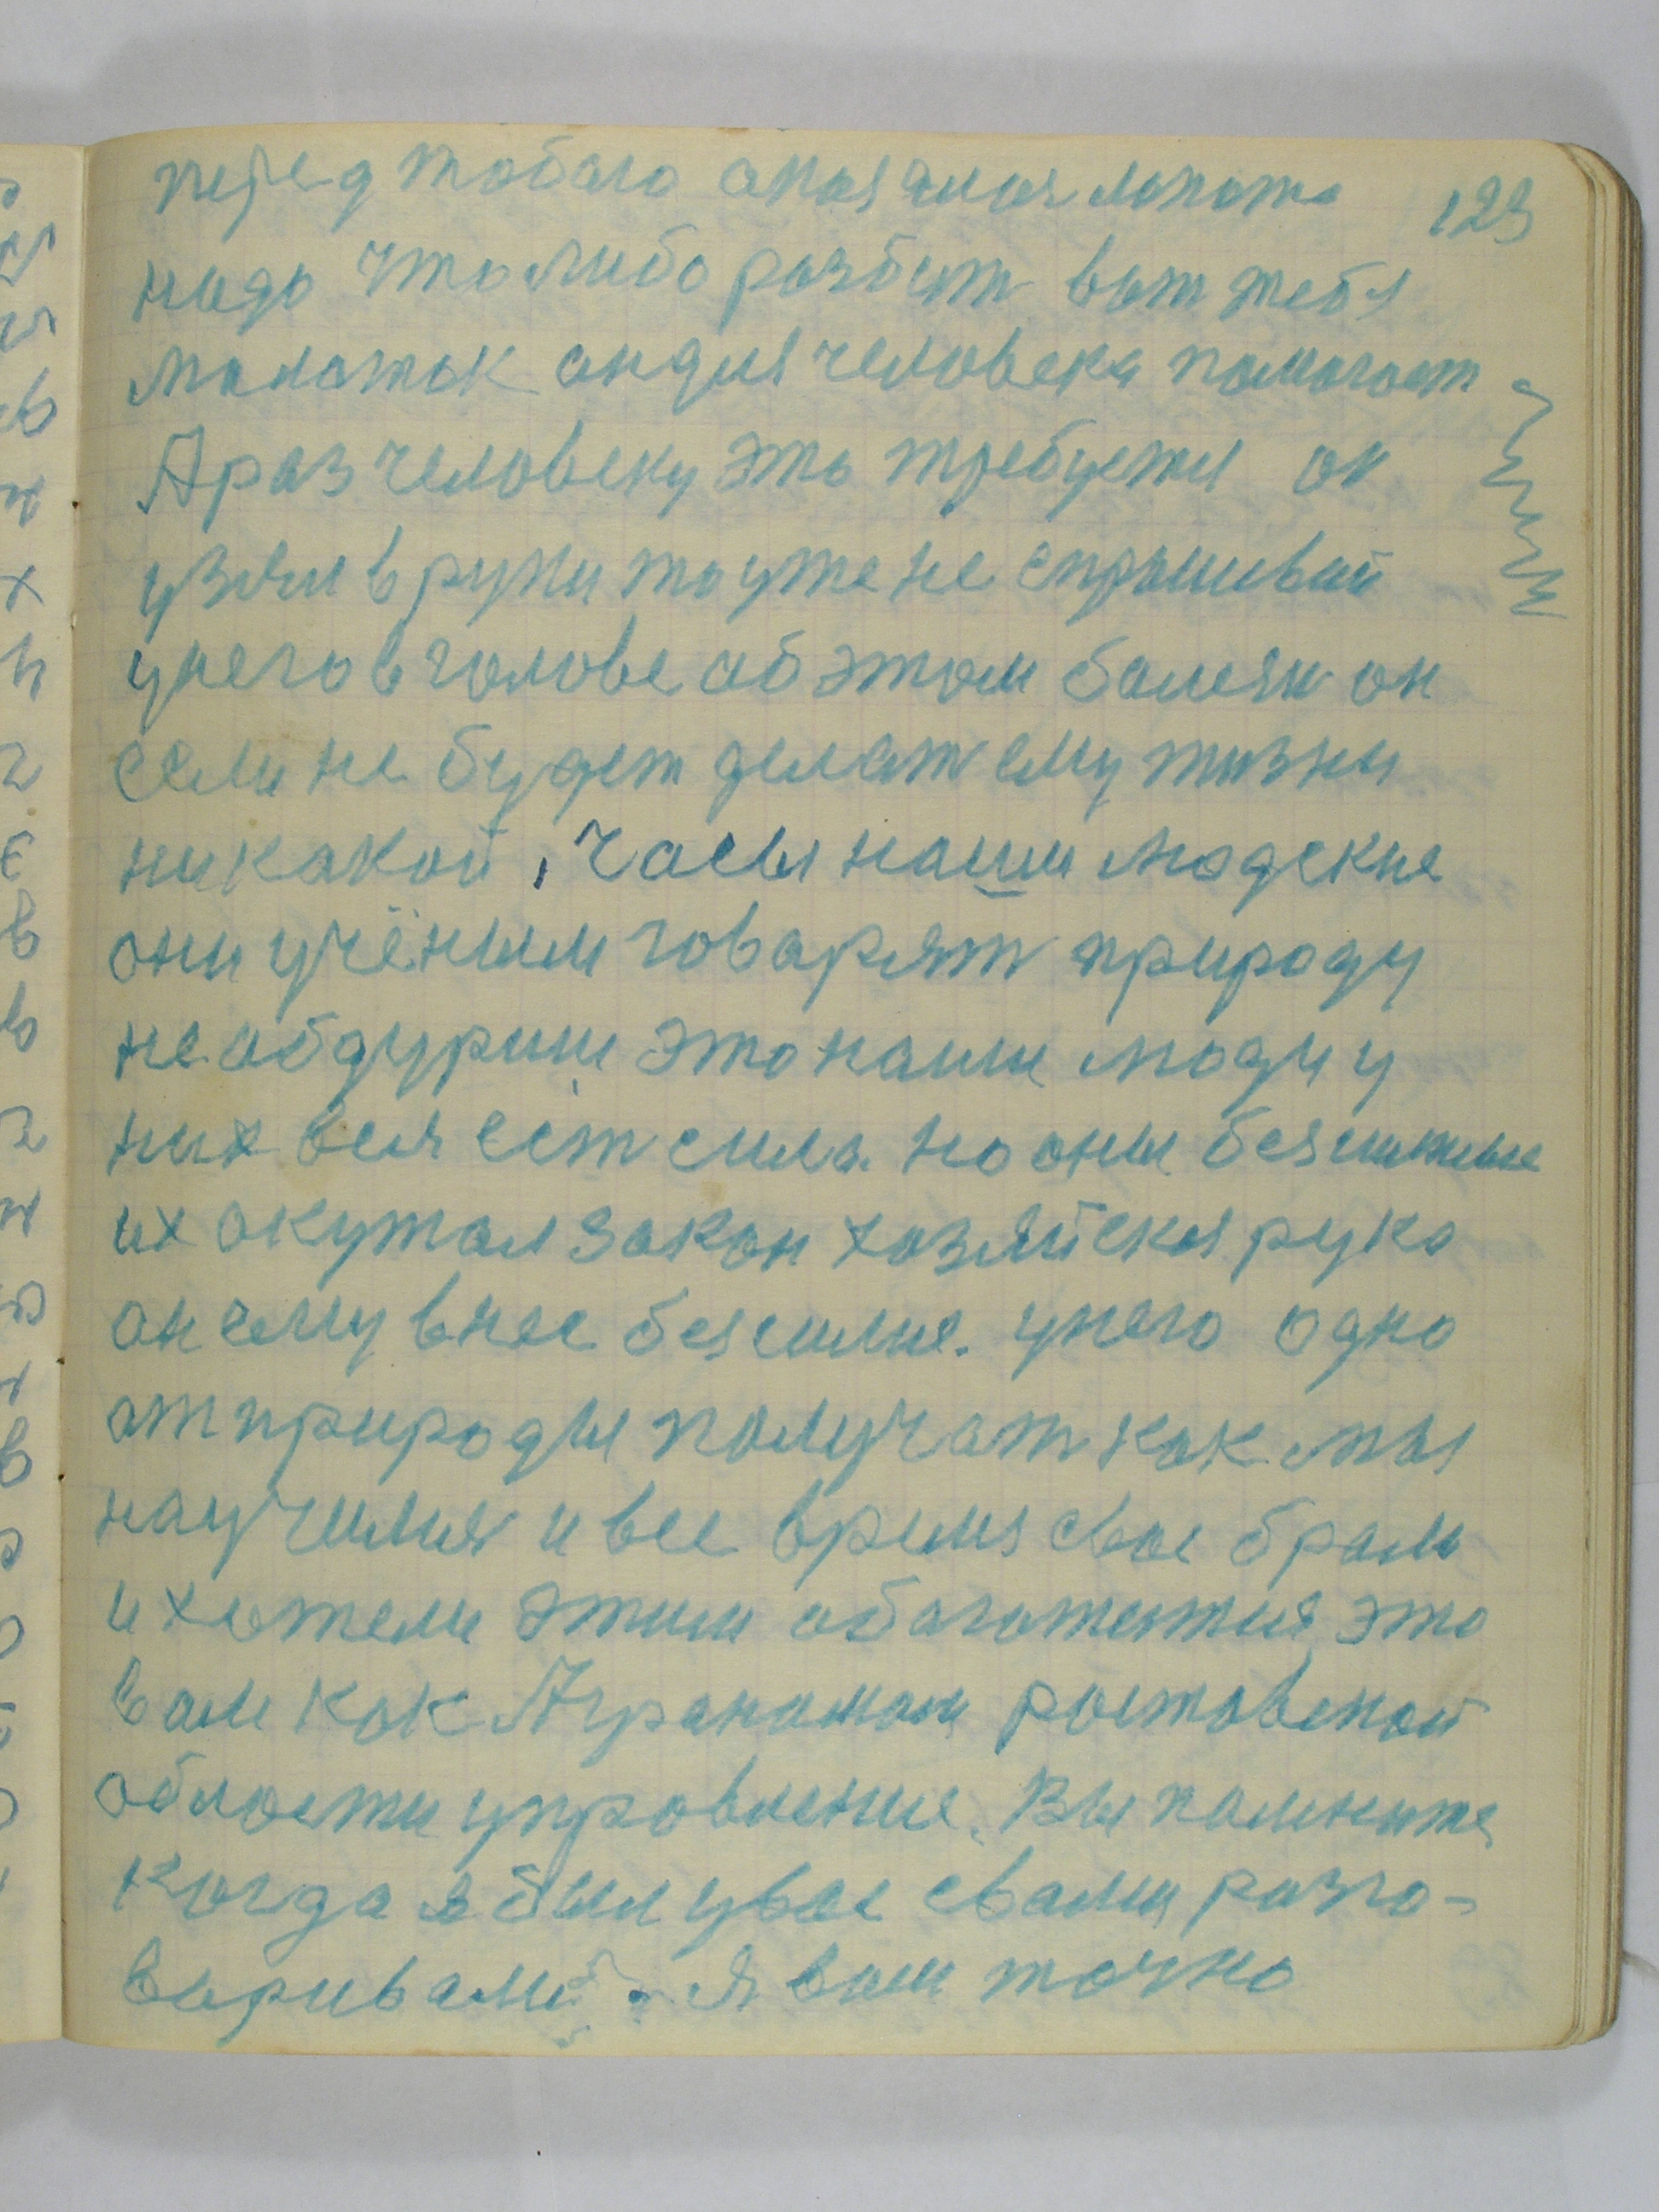 перед тобаю апаячная лопата
123
надо что либо разбит вот тебя
малаток ондля человека памогает
А раз человеку это требуется он
узял в руки то уже не спрашивай
у него в голове об этом балези он
если не будет делат ему жизни
никакой, Часы наши людские
они учёным говарят природу
не абдуриш это наши люди у
них вся ест сила. но они безсильные
их окутал закон хозяйская рука
он ему внес безсилие. у него одно
от природы палучат как мы
научился и все время свае брали
и хотели этим абагатется это
вам как Аграномам ростовской
области управление. Вы памните
когда я был увас свами разго-
варивали. я вам точно